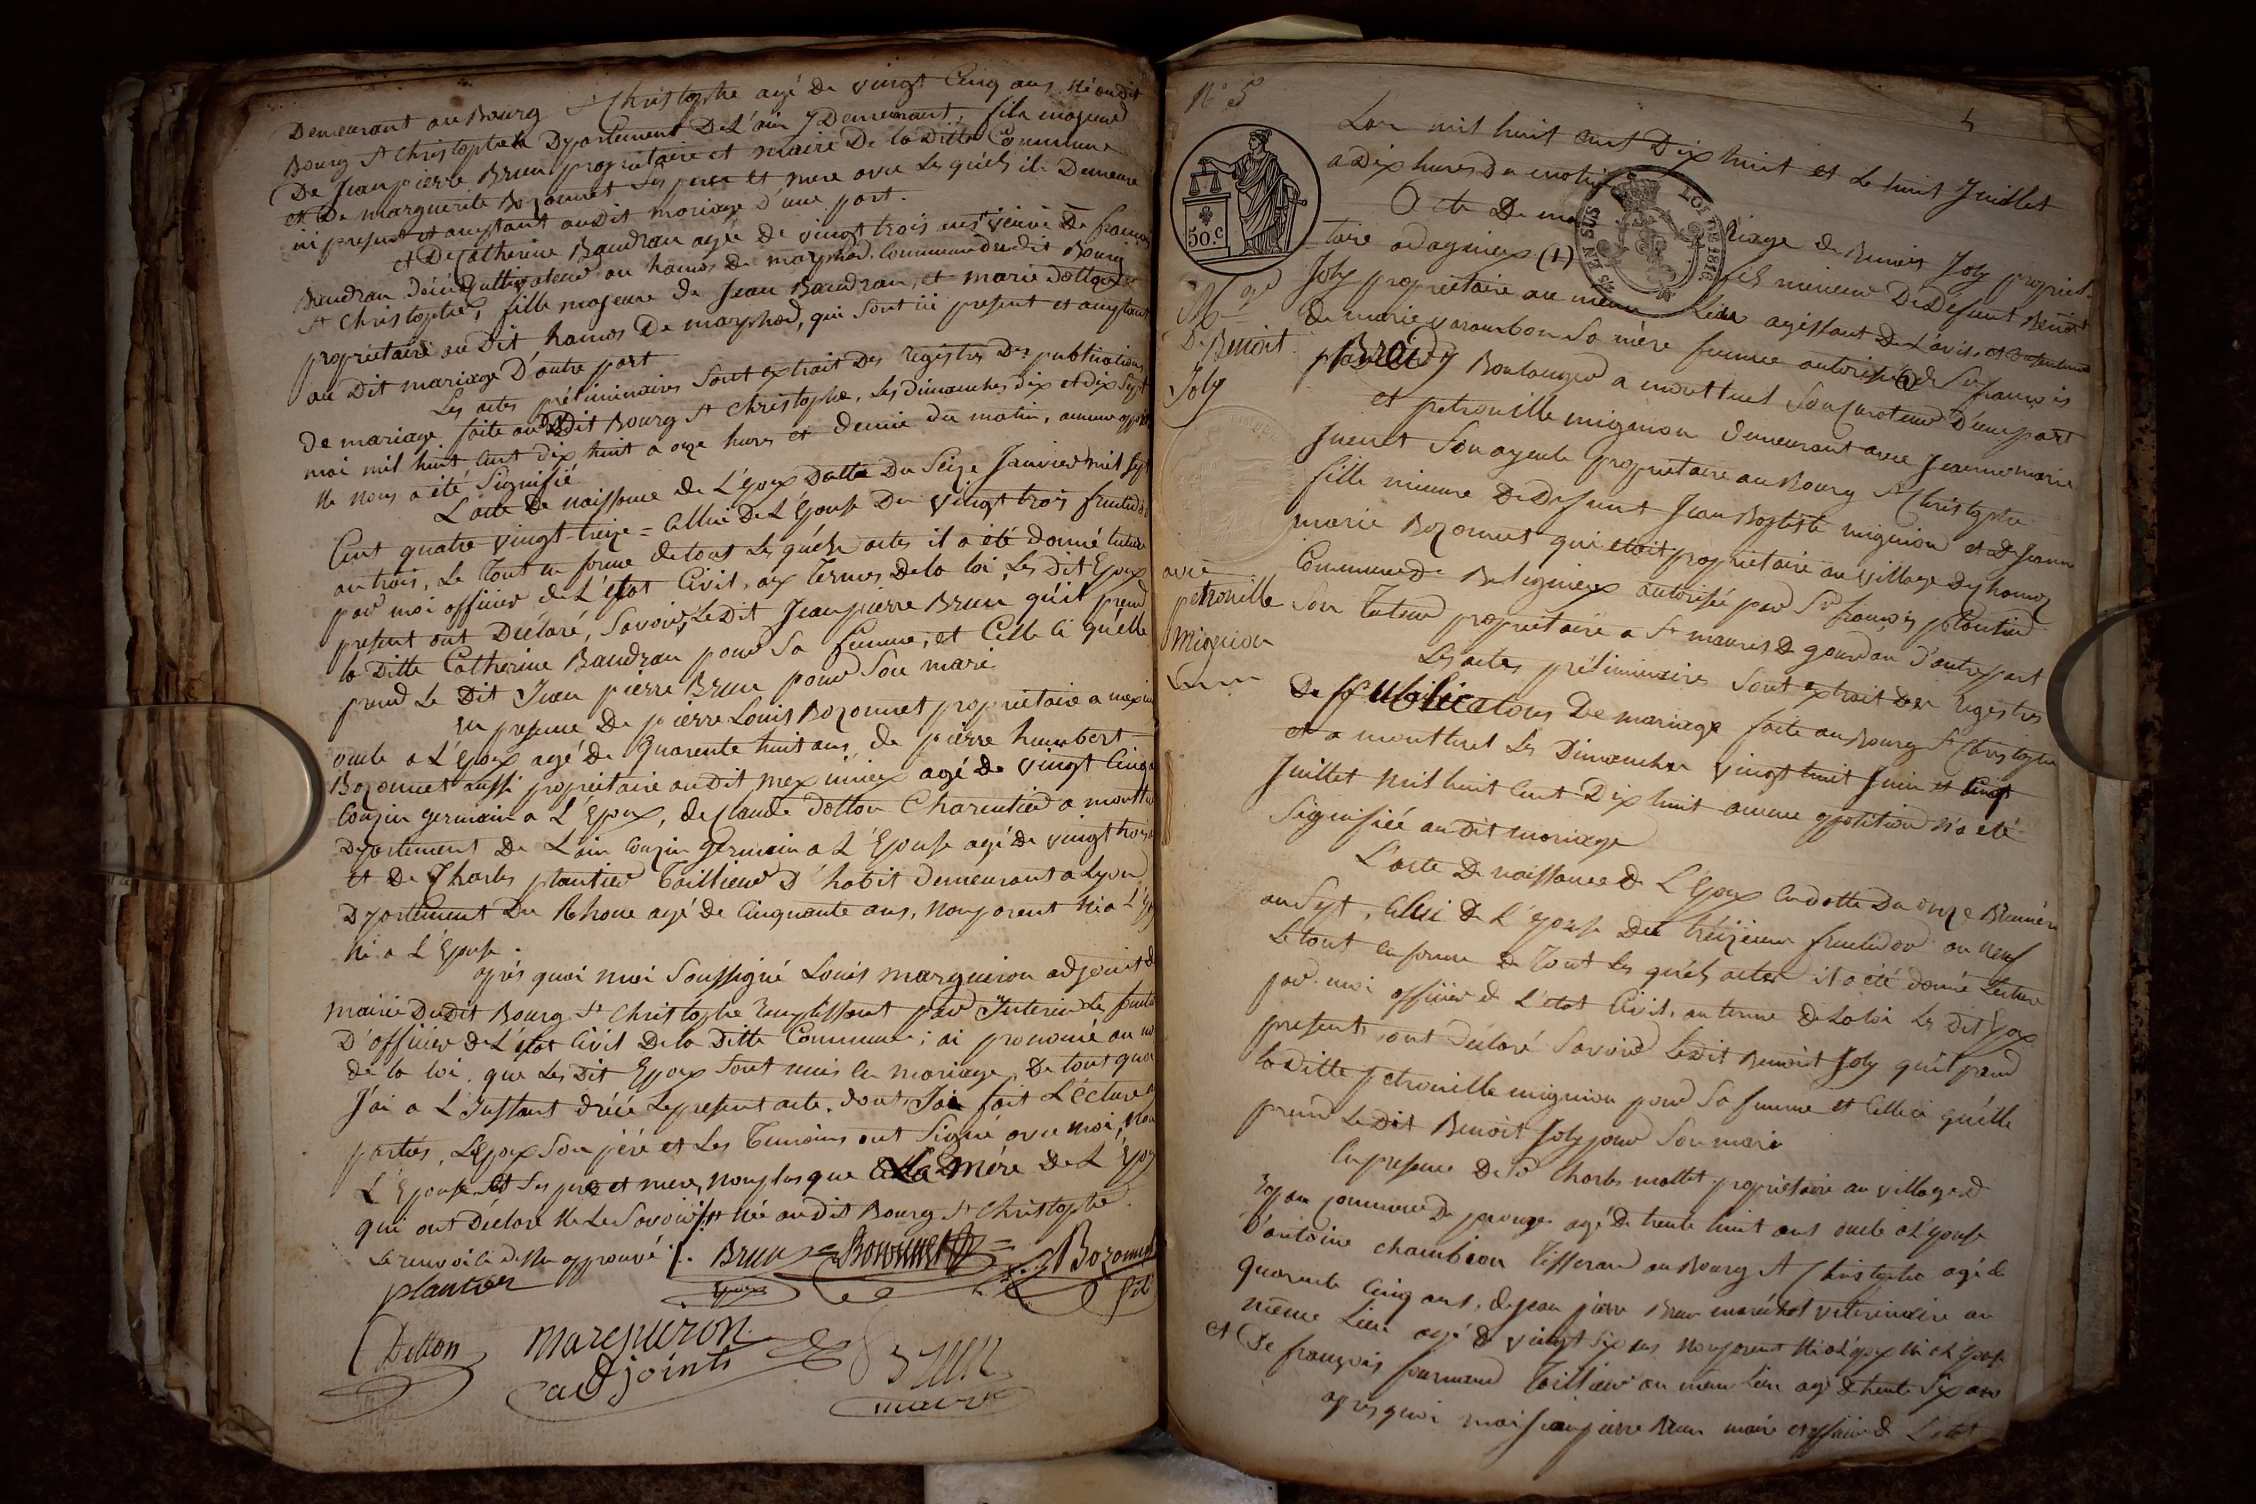 Demeurant au Bourg St Christophe agé de vingt Cinq ans né audit
Bourg St Christophe Departement De L'ain y Demeurant, fils majeur
De Jean pierre Brun proprietaire et maire De la Ditte Commune
et De marguerite Bozonnet Ses pere et mere avec Les quels il Demeure
ici present et acceptant audit mariage d'une part.
et De Catherine Baudran agée de vingt trois ans veuve De françois
Baudran cultivateur au hamos De marphod Commune dudit Bourg
St Christophe, fille majeure de Jean Baudran, et marie dolton
proprietaire au dit hamos De marphod, qui Sont ici present et acceptant
au Dit mariage D'autre part
Les actes préliminaires Sont extrait Des registres Des publications
De mariage faite audit Bourg St Christophe, Les dimanches dix et dix Sept
mai mil huit Cent dix huit a onze hures et demie du matin, aucune opposition
Ne nous a été Signifié
L'acte De naissance de L'Epoux Datte Du Seize Janvier mil Sept
Cent quatre vingt-treize = Cellui De L'Epouse Du vingt trois fructidor
an trois, Le Tout en forme de tout Les quéls actes il a été donné lecture
par moi officier de L'état Civil, aux Termes De la loi, Les Dit Epoux
present ont Déclaré, Savoir, Le Dit Jean pierre Brun qu'il prend
la Ditte Catherine Baudran pour Sa femme, et Celle Ci qu'elle
prend Le Dit Jean pierre Brun pour Son mari
en presence De pierre Louis Bozonnet proprietaire a meximieux
oncle a L'Epoux agé De Quarente huit ans, de pierre humbert
Bozonnet aussi proprietaire audit meximieux agé De vingt Cinq
Couzin germain a L'Epoux, de Claude Dolton Charentier a montluel
Departement De L'ain Couzin germain a L'Epouse agé De vingt trois
et De Charles plantier Tailleur D'habit Demeurant a Lyon
Departement Du Rhone agé De Cinquante ans, Non parent Ni a L'Epoux
Ni a L'Epouse.
après quoi moi Soussigné Louis marguiron adjoint de
mairie Dudit Bourg St Christophe Remplissant par Interim Le fonction
D'officier de L'état Civil De la Ditte Commune; ai prononcé au nom
de la loi, que Les Dit Epoux Sont unis en mariage, De tout quoi
J'ai a L'Instant dréssé Le present acte, dont J'ai fait L'écture aux
parties, L'Epoux Son père et Les Temoins ont Signé avec moi, Non
L'Epouse et Ses pere et mere, Non plus que La Mére De L'Epoux
qui ont Déclaré Ne Le Savoir /. née audit Bourg St Christophe
Le renvoi Ci dessus approuvé /. Brun Bozonnet Bozonnet
plantier époux fils
Dolton marguiron Brun
adjoint maire
N° 5
5
50.C
EN SUS LOI DE 1816
L'an mil huit Cent Dix huit et Le huit Juillet
a Dix hures Du matin
Acte De mariage de Benoit Joly propriet-
taire a dagnieux (1) fils mineur De Defunt Benoit
Joly proprietaire au meme Lieu agissant De L'avis et Consentement
De marie varambon Sa mère femme autorisée de Sr françois
Brédy Boulanger a montluel Son Curateur D'une part
et petronille mignion Demeurant avec Jeanne marie
Juenet Son ayeule proprietaire au Bourg St Christophe
fille mineure De Defunt Jean Baptiste mignion et De Jeanne
marie Bozonnet qui etoit proprietaire au village Du hamoz
Commune De Beligneux autorisée par Sr françois plantier
Son Tuteur proprietaire a St mauris De gourdan d'autre part
Les actes préliminaires Sont extrait Des registres
De publications De mariage faite au Bourg St Christophe
et a montluel Les Dimanches vingt huit Juin et Cinq
Juillet mil huit Cent Dix huit aucune opposition N'a été
Signifiée au dit mariage
L'acte De naissance de L'Epoux En datte Du onze Brumére
an Sept, Cellui De L'épouse Du treizieme fructidor an neuf
Le tout en forme De Tout Les quéls actes il a été donné Lecture
par moi officier de L'état Civil, au terme De La loi Les Dit Epoux
present, ont Déclaré Savoir Le dit Benoit Joly qu'il prend
la ditte petronille mignion pour Sa femme et Celle ci qu'elle
prend Le dit Benoit Joly pour Son mari
En presence De Sr Charles mollet proprietaire au village de
Rapan Commune De perouges agé De trente huit ans oncle a L'épouse
D'antoine chambion Tisserand au Bourg St Christophe agé de
Quarente Cinq ans, de Jean pierre Brun maréchal vétérinaire au
même Lieu agé De vingt Six ans Non parent Ni a L'époux Ni a L'épouse
et De françois fournier Tailleur au meme Lieu agé De trente Six ans
après quoi moi Jean pierre Brun maire et officier De L'etat
Mge
De Benoit
Joly
avec
petronille
Mignion